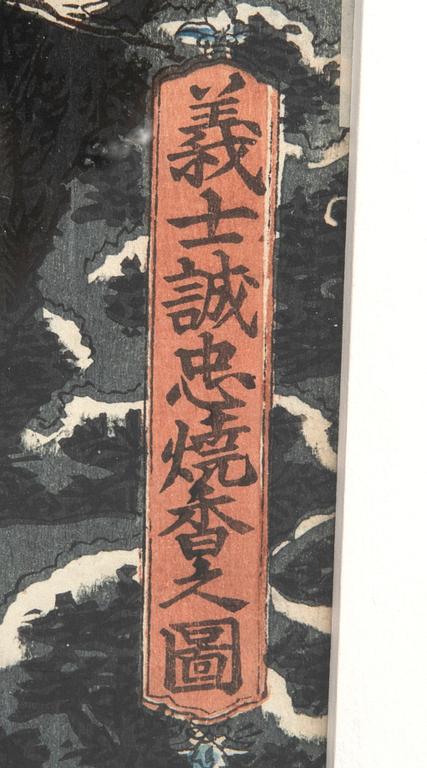 義士誠忠燒香之圖